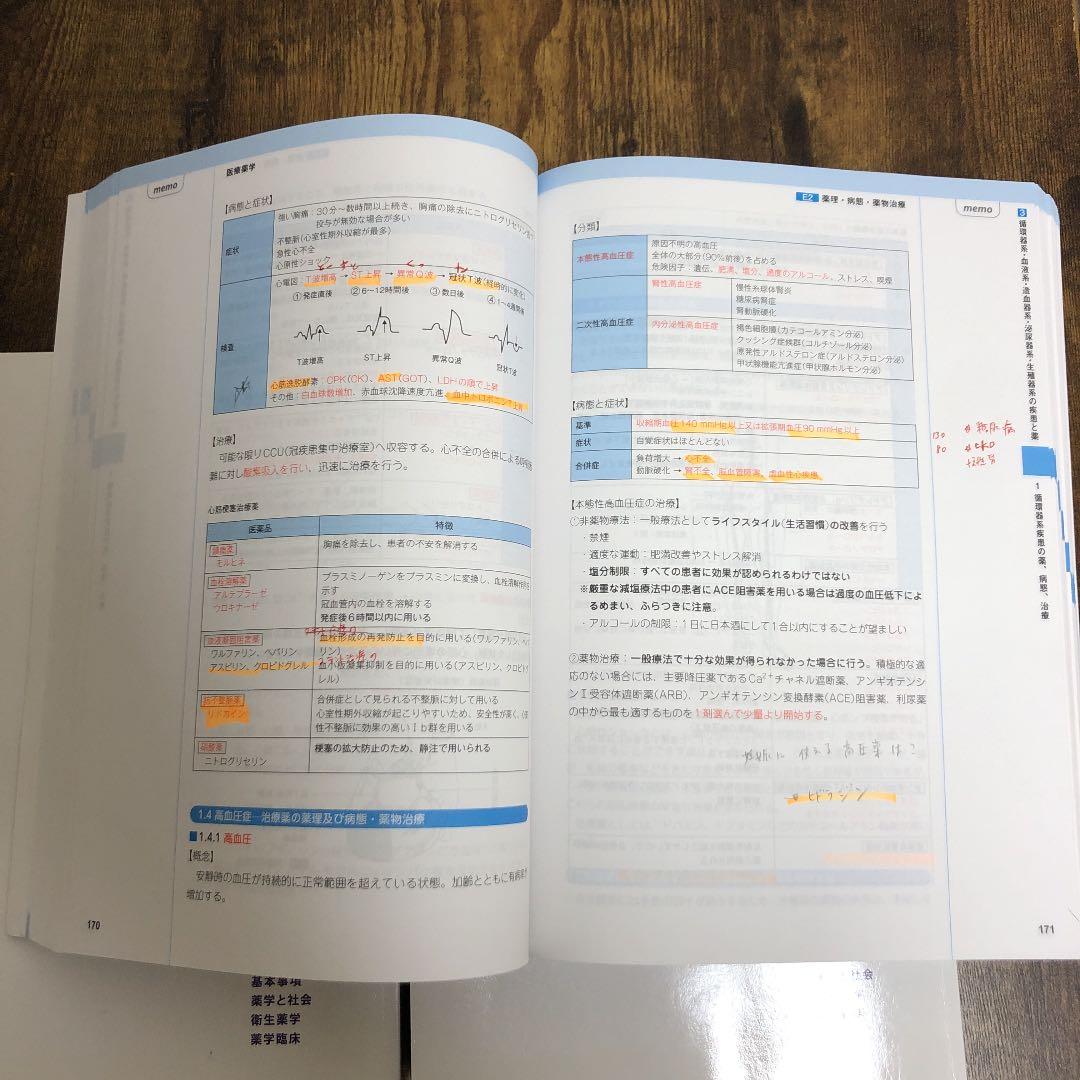 memo
医療薬学
【病態と症状】
症状
強い胸痛：30分～数時間以上続き、胸痛の除去にニトログリセリン
投与が無効な場合が多い
不整脈（心室性期外収縮が最多）
急性心不全
心原性ショック
検査
心電図：T波増高→ST上昇→異常Q波→冠状T波（経時的に変化）
①発症直後 ②6～12時間後 ③数日後 ④1～4週間後
T波増高 ST上昇 異常Q波 冠状T波
心筋逸脱酵素：CPK(CK)、AST(GOT)、LDHの順で上昇
その他：白血球数増加、赤血球沈降速度亢進、血中トロポニンT上昇
【治療】
可能な限りCCU（冠疾患集中治療室）へ収容する。心不全の合併による呼吸困
難に対し酸素吸入を行い、迅速に治療を行う。
心筋梗塞治療薬
医薬品 特徴
鎮痛薬
モルヒネ
胸痛を除去し、患者の不安を解消する
血栓溶解薬
アルテプラーゼ
ウロキナーゼ
プラスミノーゲンをプラスミンに変換し、血栓溶解作用を
示す
冠血管内の血栓を溶解する
発症後6時間以内に用いる
血液凝固阻害薬
ワルファリン、ヘパリン
アスピリン、クロピドグレル
血栓形成の再発防止を目的に用いる（ワルファリン、ヘパ
リン）
血小板凝集抑制を目的に用いる（アスピリン、クロピドグ
レル）
抗不整脈薬
リドカイン
合併症として見られる不整脈に対して用いる
心室性期外収縮が起こりやすいため、安全性が高く、
性不整脈に効果の高いⅠb群を用いる
硝酸薬
ニトログリセリン
梗塞の拡大防止のため、静注で用いられる
1.4 高血圧症―治療薬の薬理及び病態・薬物治療
1.4.1 高血圧
【概念】
安静時の血圧が持続的に正常範囲を超えている状態。加齢とともに有病率
増加する。
170
E2 薬理・病態・薬物治療
memo
【分類】
本態性高血圧症
原因不明の高血圧
全体の大部分（90%前後）を占める
危険因子：遺伝、肥満、塩分、過度のアルコール、ストレス、喫煙
二次性高血圧症
腎性高血圧症
慢性糸球体腎炎
糖尿病腎症
腎動脈硬化
内分泌性高血圧症
褐色細胞腫（カテコールアミン分泌）
クッシング症候群（コルチゾール分泌）
原発性アルドステロン症（アルドステロン分泌）
甲状腺機能亢進症（甲状腺ホルモン分泌）
【病態と症状】
基準 収縮期血圧140 mmHg以上又は拡張期血圧90 mmHg以上
症状 自覚症状はほとんどない
合併症
負荷増大 → 心不全
動脈硬化 → 腎不全、脳血管障害、虚血性心疾患
130 糖尿病
80 CKD
【本態性高血圧症の治療】
①非薬物療法：一般療法としてライフスタイル（生活習慣）の改善を行う
・禁煙
・適度な運動：肥満改善やストレス解消
・塩分制限：すべての患者に効果が認められるわけではない
※厳重な減塩療法中の患者にACE阻害薬を用いる場合は過度の血圧低下によ
るめまい、ふらつきに注意。
・アルコールの制限：1日に日本酒にして1合以内にすることが望ましい
②薬物治療：一般療法で十分な効果が得られなかった場合に行う。積極的な適
応のない場合には、主要降圧薬であるCa²⁺チャネル遮断薬、アンギオテンシ
ンⅠ受容体遮断薬(ARB)、アンギオテンシン変換酵素(ACE)阻害薬、利尿薬
の中から最も適するものを1剤選んで少量より開始する。
妊娠に使える高圧薬は？
ヒドラジン
3 循環器系・血液系・造血器系・泌尿器系・生殖器系の疾患と薬
1 循環器系疾患の薬、病態、治療
171
基本事項
薬学と社会
衛生薬学
薬学臨床
社会